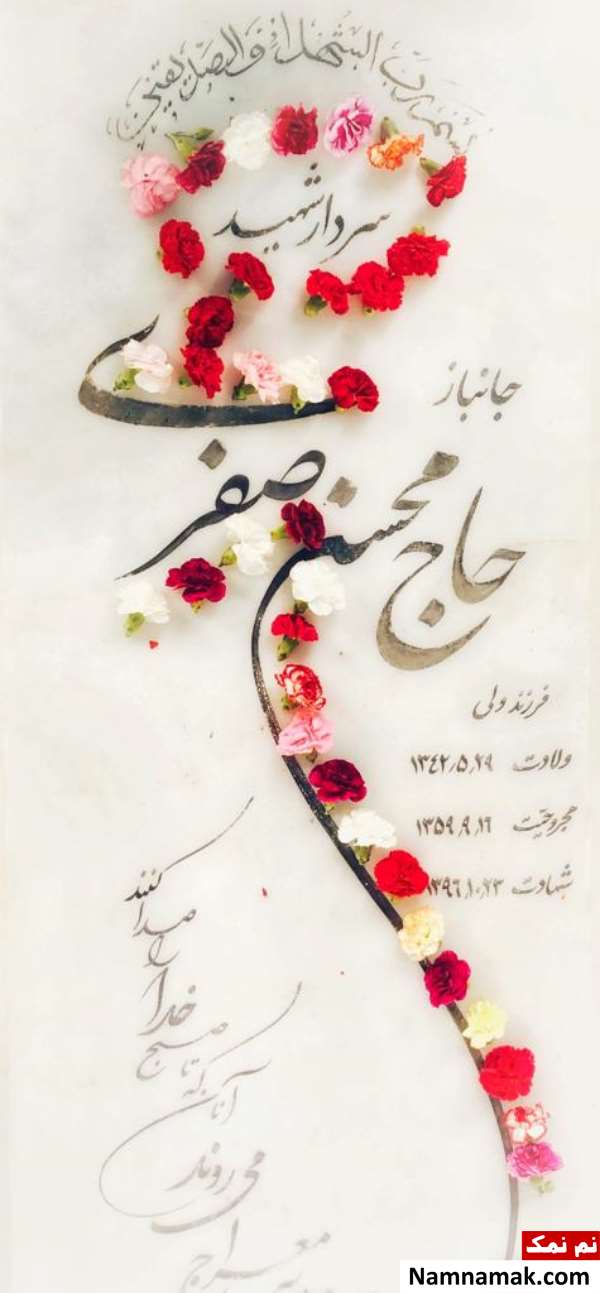 بسم رب الشهداء و الصدیقین
سردار شهید
جانباز
حاج محسن صفری
فرزند ولی
ولادت ۱۳۴۲٫۵٫۲۹
مجروحیت ۱۳۵۹٫۹٫۱۶
شهادت ۱۳۹۶٫۱۰٫۲۳
آنان که تا صبح خدا را صدا کنند
می روند
معراج
نم نمک
Namnamak.com